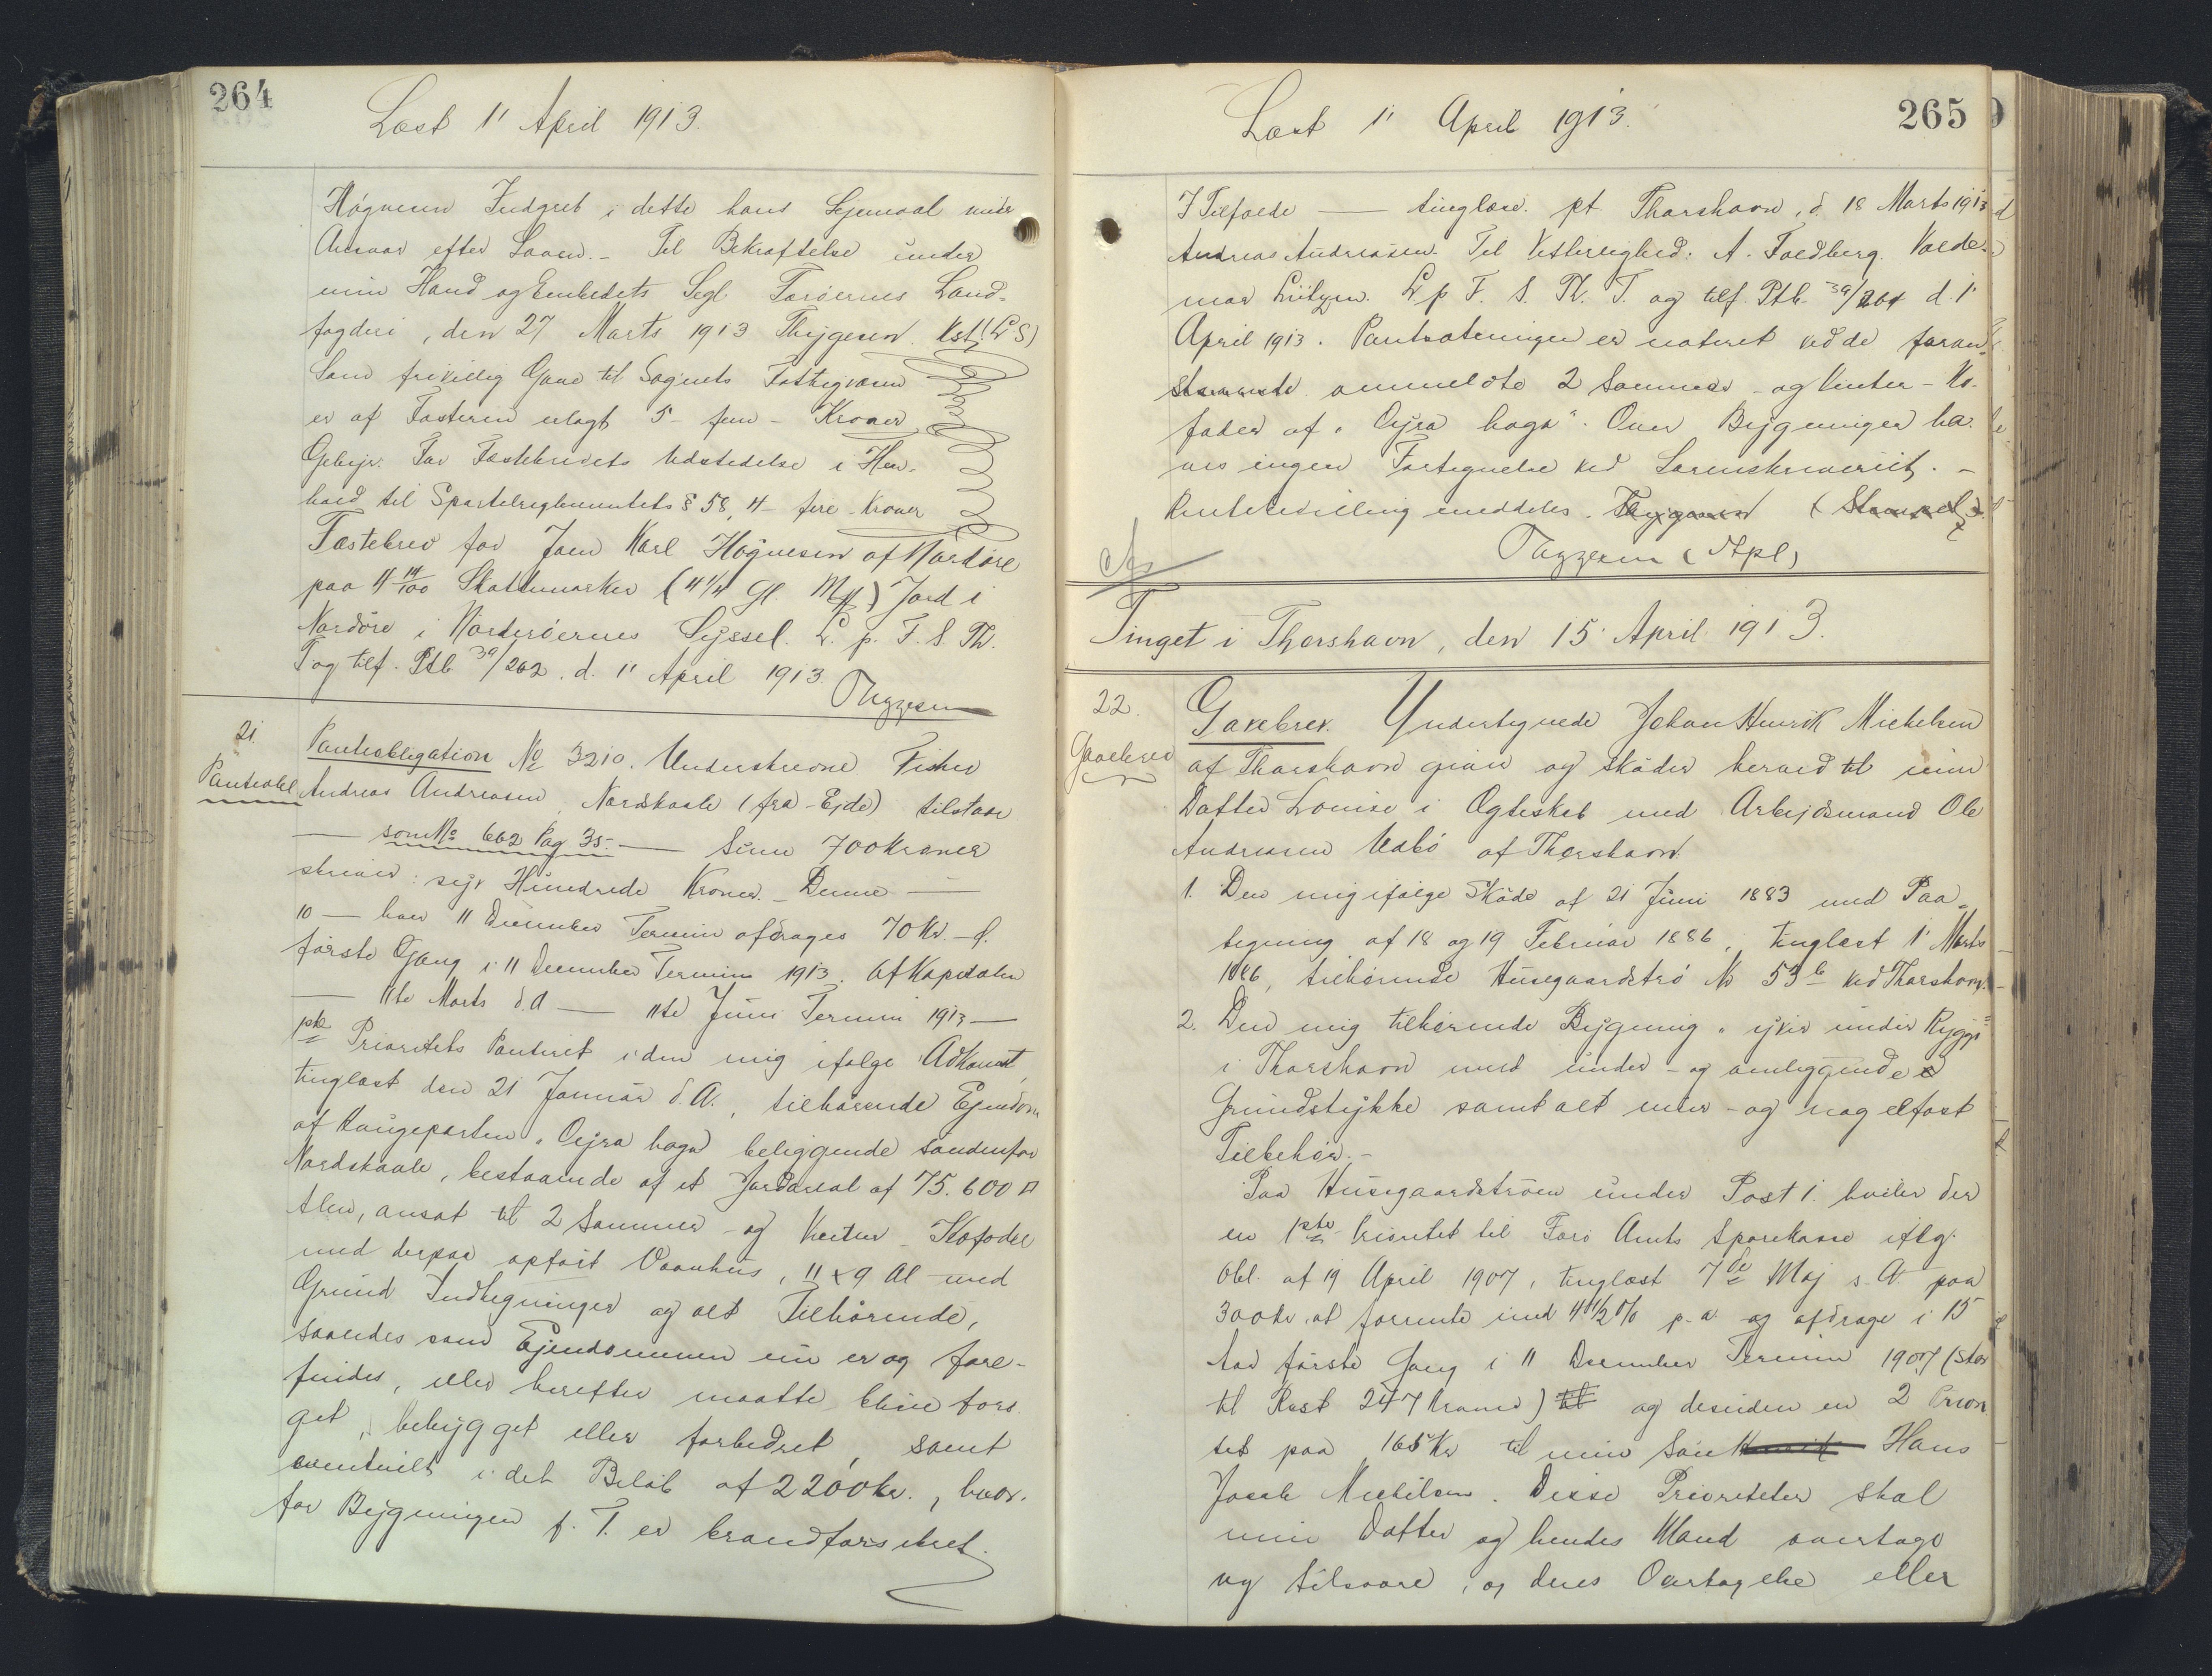 264
Læst 1' April 1913.
Høgnesen Indgreb i dette hans Lejemaal under
Ansvar efter Loven. - Til Bekræftelse under
min Haand og Embedets Segl. Færøernes Land-
fogderi, den 27 Marts 1913 Thygesen. Kst. (L.S)
Som frivillig Gave til Sognets Fattigvæsen
er af Fæsteren erlagt 5 - fem - Kroner
Gebyr. For Fæstebrevets Udstedelse i Hen-
hold til Sportelreglementets § 58, 4 - fire - Kroner
Fæstebrev for Joen Karl Høgnesen af Nordøre
paa 4 14/100 Skattemarker (4 1/4 Gl. Mk) Jord i
Nordøre i Norderøernes Syssel. L. p. F. S. Th.
T og tilf. Ptb 39/262. d. 1' April 1913.
Thygesen
21.
Panteobl.
Panteobligation № 3210. Underskrevne Fisker
Andreas Andreasen, Nordskaale (fra - Ejde) tilstaar
— som № 662 Pag 35. — Sum 700 Kroner
skriver: syv Hundrede Kroner. - Denne —
10 — hver 11 December Termin afdrages 70 Kr. - d.
første Gang i 11 December Termin 1913. Af Kapitalen
— 11te Marts d.A — 11te Juni Termin 1913 —
1ste Prioritets Panteret i den mig ifølge Adkomst,
tinglæst den 21 Januar d. A., tilhørende Ejendom
af Haugeparten "Oyra haga" beliggende søndenfor
Nordskaale, bestaaende af et Jordareal af 75.600 □
Alen, ansat til 2 Sommer - og Vinter - Kofoder
med derpaa opført Vaanhus, 11 x 9 Al - med
Grund Indhegninger og alt Tilhørende,
saaledes som Ejendommen nu er og fore-
findes, eller herefter maatte blive foro-
get, bebygget eller forbedret, samt
eventuelt i det Beløb af 2200 kr., hvor-
for Bygningen f. T. er brandforsikret.
265
Læst 1' April 1913.
I Tilfælde — tinglæse. pt. Thorshavn, d. 18 Marts 1913
Andreas Andreasen. Til Vitterlighed: A. Foldberg. Valde-
mar Lützen. L. p. F. S. Th. T. og tilf. Ptb. 39/264 d. 1'
April 1913. Pantsætningen er noteret ved de foran-
staaende anmeldte 2 Sommer - og Vinter - Ko-
foder af "Oyra haga". Over Bygninger ha-
ves ingen Fortegnelse ved Sorenskriveriet. -
Rentebevilling meddeles. Thygesen (Stempel)
Thygesen (Stpl)
Tinget i Thorshavn, den 15' April 1913.
22.
Gavebrev
Gavebrev. Undertegnede Johan Henrik Michelsen
af Thorshavn giver og skøder herved til min
Datter Louise i Ægteskab med Arbejdsmand Ole
Andreasen Uabó af Thorshavn.
1. Den mig ifølge Skøde af 21 Juni 1883 med Paa-
tegning af 18 og 19 Februar 1886, tinglæst 1' Marts
1886, tilhørende Husegaardstrø № 53 b ved Thorshavn.
2. Den mig tilhørende Bygning "yvir undir Ryggi"
i Thorshavn med under - og omliggende
Grundstykke samt alt mur - og nagelfast
Tilbehør. -
Paa Husegaardstrøen under Post 1. hviler der
en 1ste Prioritet til Færø Amts Sparekasse iflg.
Obl. af 19 April 1907, tinglæst 7de Maj s. A. paa
300 kr. at forrente med 4 1/2 % p. a. og afdrage i 15
Aar første Gang i 11 December Termin 1907 (stor
til Rest 247 Kroner) til og desuden en 2 Priori
tet paa 165 Kr til min Søn Hans
Jacob Michelsen. Disse Prioriteter skal
min Datter og hendes Mand overtage
og tilsvare, og deres Overtagelse eller